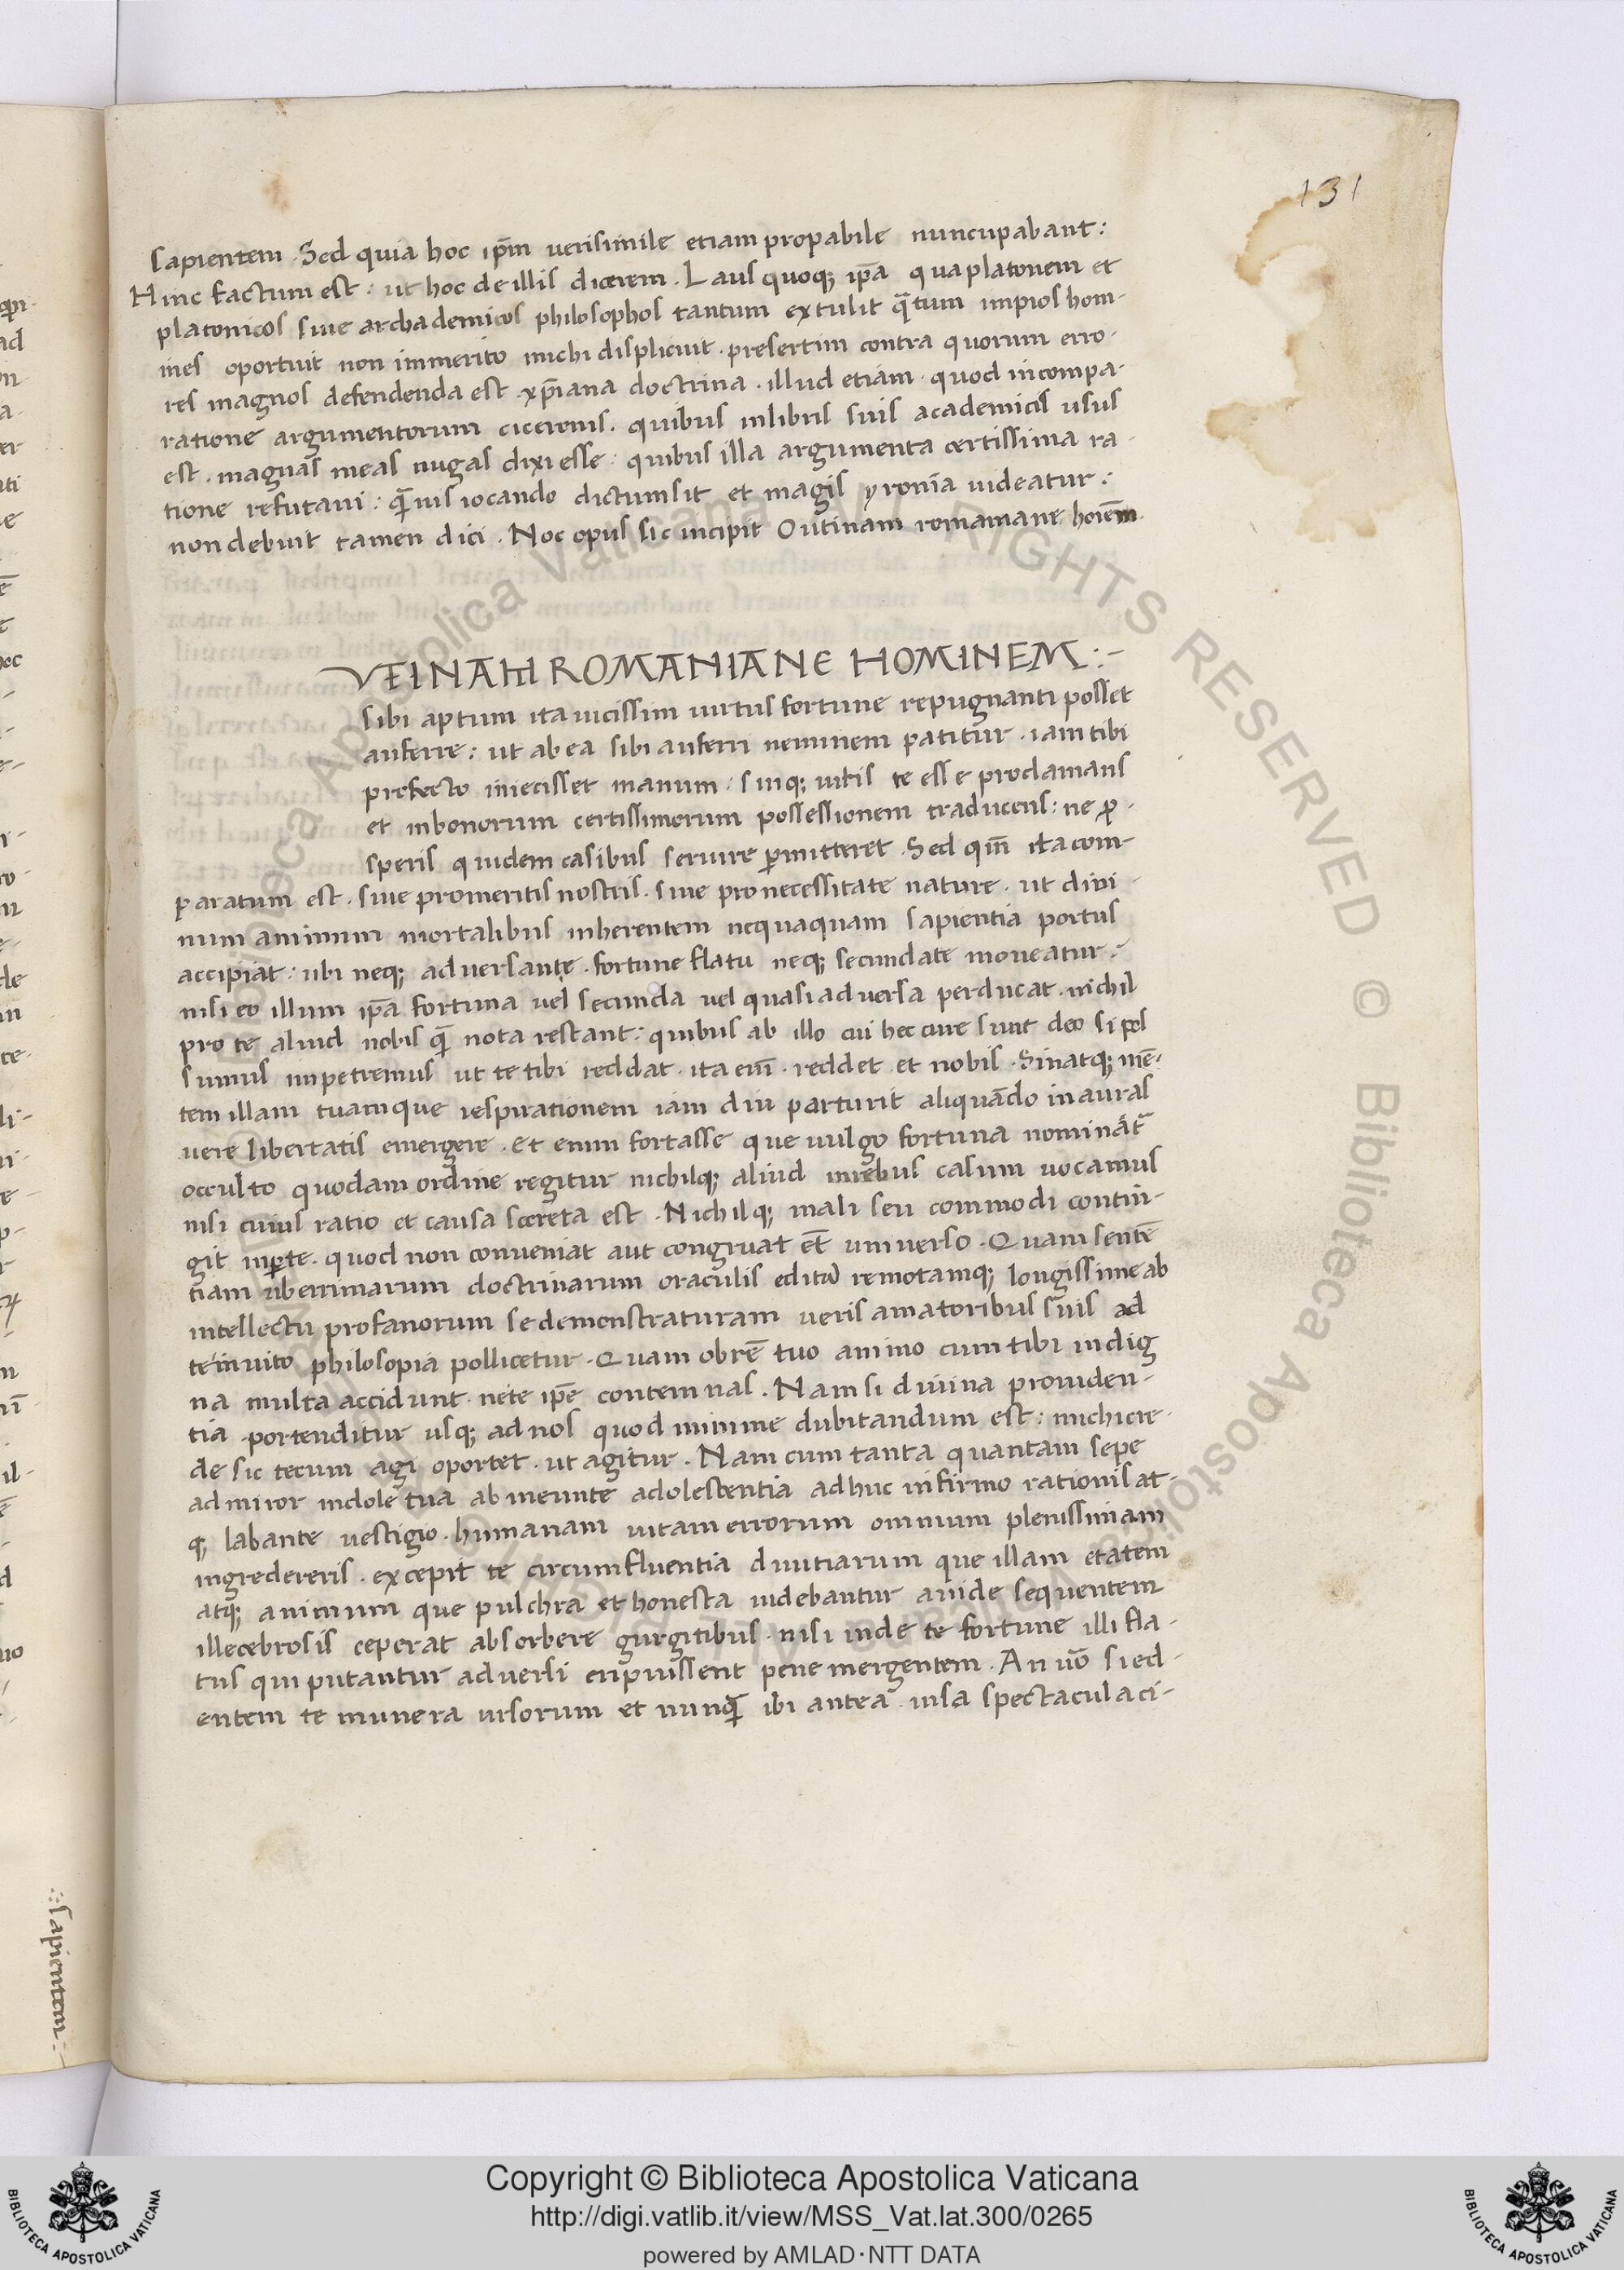 131
sapientem. Sed quia hoc ip̄m uerisimile etiam propabile nuncupabant:
Hinc factum est: ut hoc de illis dicerem. Laus quoq; ip̄a qua platonem et
platonicos siue archademicos philosophos tantum extulit q̄tum impios hom-
ines oportuit non immerito michi displicuit. presertim contra quorum erro-
res magnos defendenda est xp̄iana doctrina. illud etiam quod in compa-
ratione argumentorum ciceronis. quibus in libris suis academicis usus
est. magnas meas nugas dixi esse: quibus illa argumenta certissima ra-
tione refutaui: q̄uis iocando dictum sit et magis yronia uideatur:
non debuit tamen dici. Hoc opus sic incipit O utinam romaniane hoiēm
VTINAM ROMANIANE HOMINEM:-
sibi aptum ita uicissim uirtus fortune repugnanti posset
auferre: ut ab ea sibi auferri neminem patitur. iam tibi
profecto iniecisset manum. suiq; iuris te esse proclamans
et in bonorum certissimorum possessionem traducens: ne p̄ro-
speris quidem casibus seruire p̄mitteret. Sed qm̄ ita com-
paratum est. siue pro meritis nostris. siue pro necessitate nature. ut diui-
num animum mortalibus inherentem nequaquam sapientia portus
accipiat: ubi neq; aduersante. fortune flatu neq; secundate moueatur:
nisi eo illum ip̄a fortuna uel secunda uel quasi aduersa perducat. nichil
pro te aliud nobis q̄ nota restant: quibus ab illo cui hec cure sunt deo si pos
sumus impetremus ut te tibi reddat. ita eni͞ reddet et nobis. Sinatq; mē-
tem illam tuam que respirationem iam diu parturit aliquādo in auras
uere libertatis emergere. Et enim fortasse que uulgo fortuna nominat̄
occulto quodam ordine regitur nichilq; aliud in rebus casum uocamus
nisi cuius ratio et causa secreta est. Nichilq; mali seu commodi contin-
git in p̄te. quod non conueniat aut congruat et̄ uniuerso. Quam sentē
tiam uberrimarum doctrinarum oraculis editā remotamq; longissime ab
intellectu profanorum se demonstraturam ueris amatoribus suis ad
te inuito philosopia pollicetur. Quam obrē tuo animo cum tibi indig
na multa accidunt. ne te ip̄e contemnas. Nam si diuina prouiden-
tia portenditur usq; ad nos quod minime dubitandum est: michi cre-
de sic tecum agi oportet. ut agitur. Nam cum tanta quantam sepe
admiror indole tua ab ineunte adolescentia adhuc infirmo rationis at-
q; labante uestigio. humanam uitam errorum omnium plenissimam
ingredereris. excepit te circumfluentia diuitiarum que illam etatem
atq; animum que pulchra et honesta uidebantur auide sequentem
illecebrosis ceperat absorbere gurgitibus. nisi inde te fortune illi fla-
tus qui putantur aduersi eripuissent pene mergentem. An uō si ed-
entem te munera ursorum et nunq̄ ibi antea uisa spectacula ci-
sapientem:
Copyright © Biblioteca Apostolica Vaticana
http://digi.vatlib.it/view/MSS_Vat.lat.300/0265
powered by AMLAD·NTT DATA
BIBLIOTECA APOSTOLICA VATICANA
BIBLIOTECA APOSTOLICA VATICANA